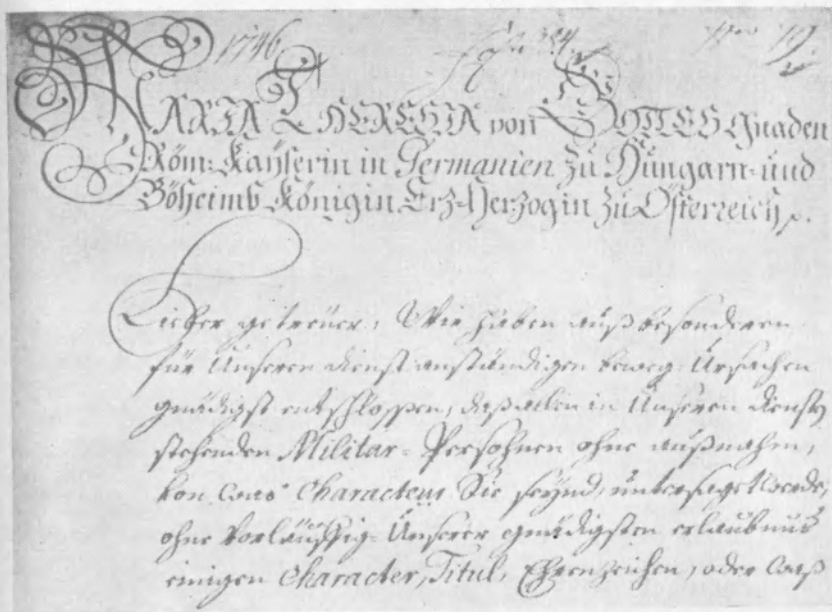 1746
MARIA THERESIA von GOTTES Gnaden
Röm: Kaÿserin in Germanien zu Hungarn- und
Böheimb Königin Erz-Herzogin zu Österreich
Lieber getreüer, Wir haben auß besonderen
für Unseren dienst anständigen beweg-Ursachen
gnädigst entschlossen, daß allen in Unseren diensten
stehenden Militar-Persohnen ohne außnahm,
von was Characteurs Sie seÿnd, untersaget werde,
ohne vorläuffig-Unserer gnädigsten erlaubnus
einigen Character, Titul, Ehrenzeichen, oder